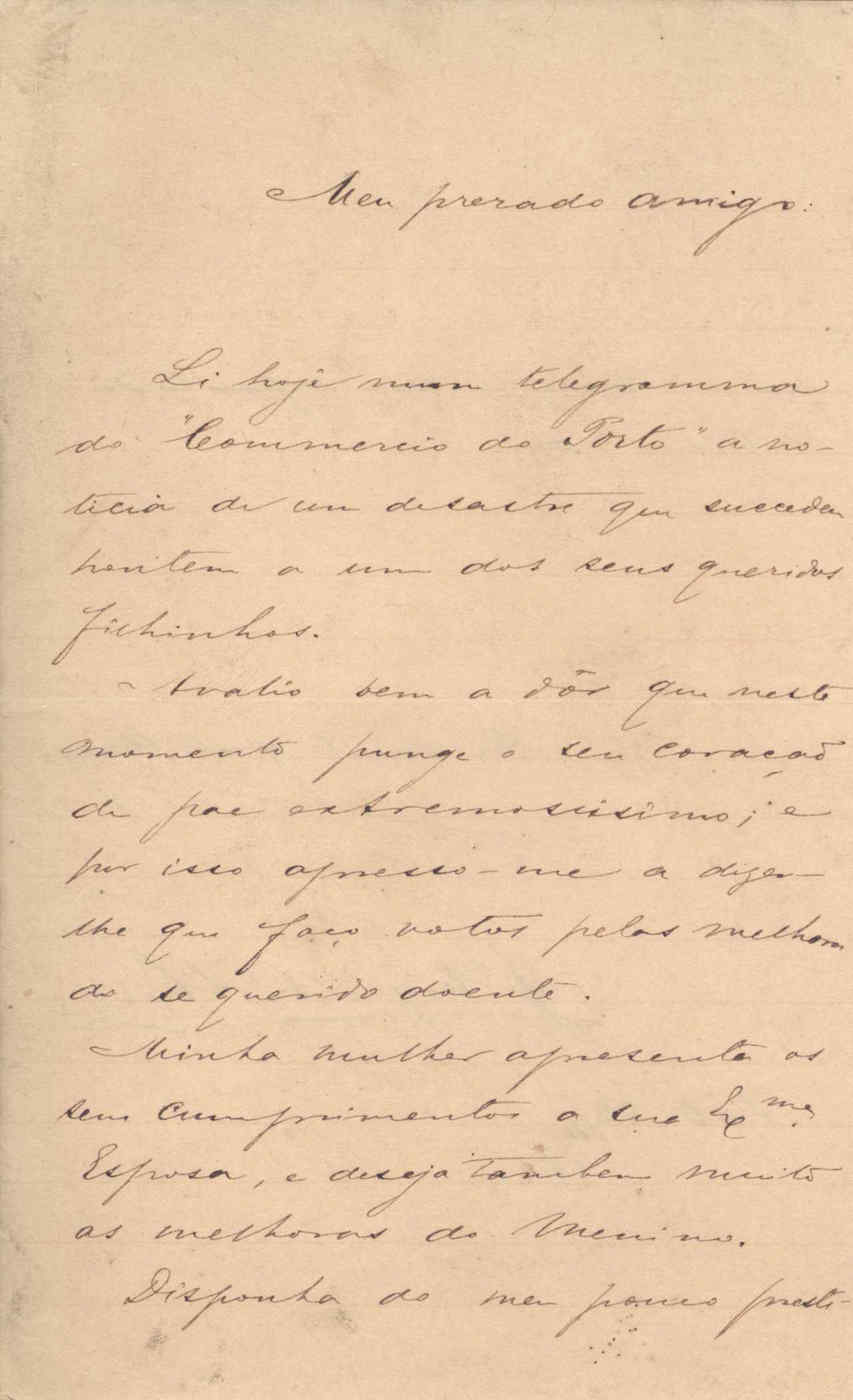 Meu prezado amigo:
Li hoje num telegramma
do "Commercio do Porto" a no-
ticia de um desastre que succedeu
hontem a um dos seus queridos
filhinhos.
Avalio bem a dôr que neste
momento punge o seu coração
de pae extremosissimo; e
por isso apresso-me a dizer-
lhe que faço votos pelas melhoras
do se querido doente.
Minha mulher apresenta os
seus cumprimentos a sua Exma.
Esposa, e deseja tambem muito
as melhoras do Menino.
Disponha do meu pouco presti-